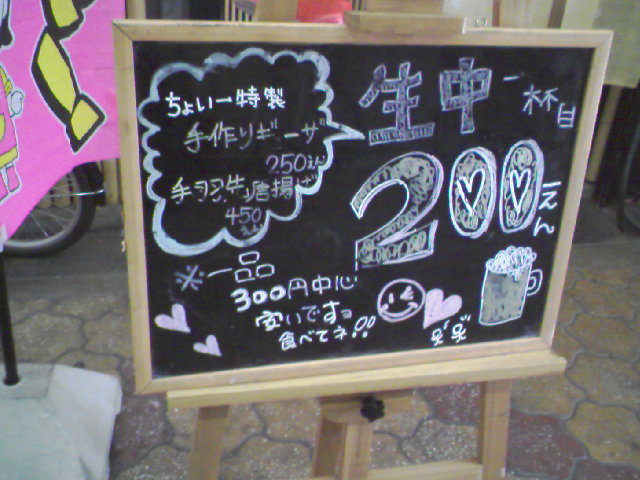 ちょい一特製
手作りギョーザ
250えん
手羽先唐揚げ
450えん
生中一杯目
200えん
※一品
300円中心
安いですョ
食べてネ!!